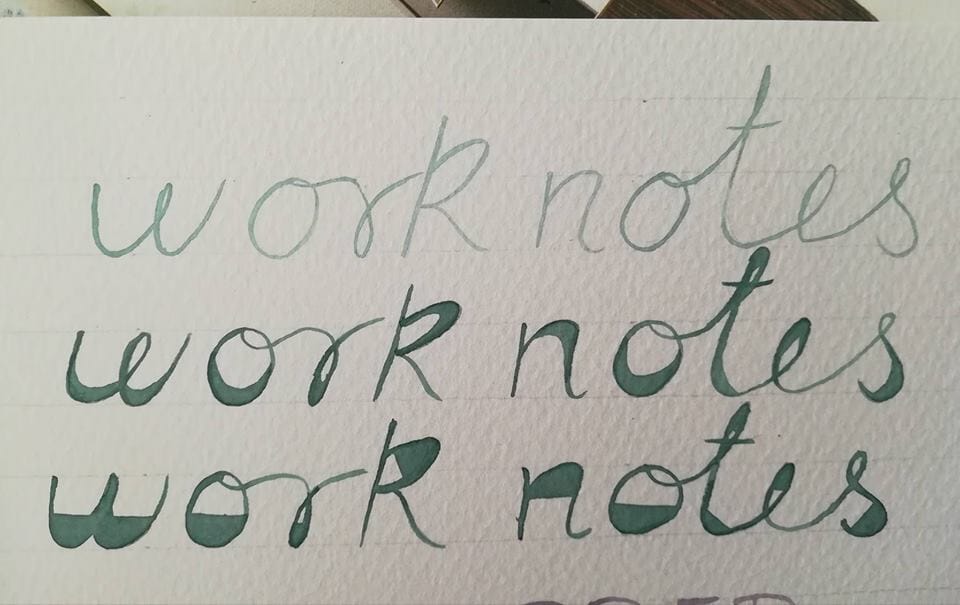 work notes
work notes
work notes